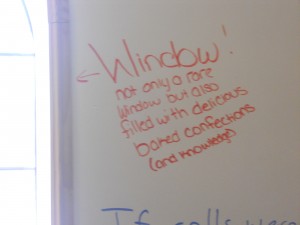 ← Window!
not only a rare
window, but also
filled with delicious
baked confections
(and knowledge)
If cells were